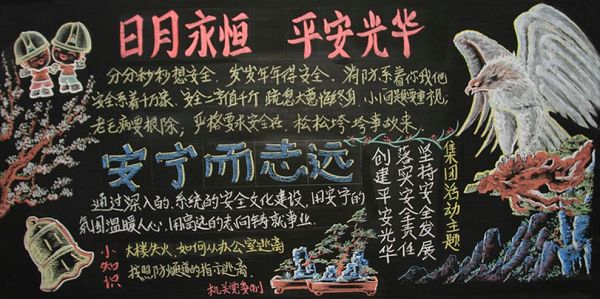 日月永恒 平安光华
分分秒秒想安全、岁岁年年得安全、消防系着你我他
安全系着千万家、安全二字值千斤 疏忽大意悔终身，小问题要重视，
老毛病要根除，严格要求安全在 松松垮垮事故来
安宁而志远
通过深入的、系统的安全文化建设，用安宁的
氛围温暖人心，用高远的志向铸就事业
小知识
大楼失火，如何从办公室逃离
找照防烟道的指示逃离.
机关党委制
集团活动主题
坚持安全发展
落实安全责任
创建平安光华